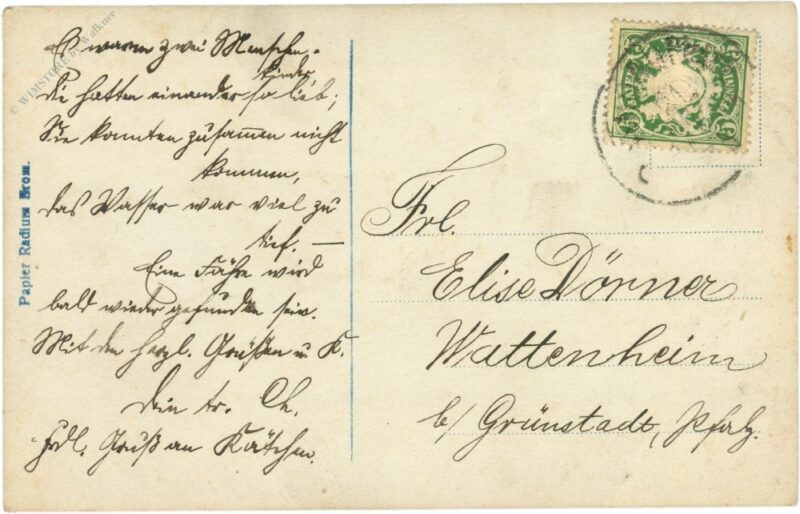 Es waren zwei Menschen-
kinder
Die hatten einander so lieb;
Sie konnten zusammen nicht
kommen,
das Wasser war viel zu
tief. —
Eine Fähre wird
bald wieder gefunden sein.
Mit den herzl. Grüßen u. K.
Dein tr. Ch.
Frdl. Gruß an Kätchen.
Papier Radium Brom.
© WIMSTORE by Walkner
BAYERN
5 5
Frl.
Elise Dörner
Wattenheim
b/ Grünstadt, Pfalz.